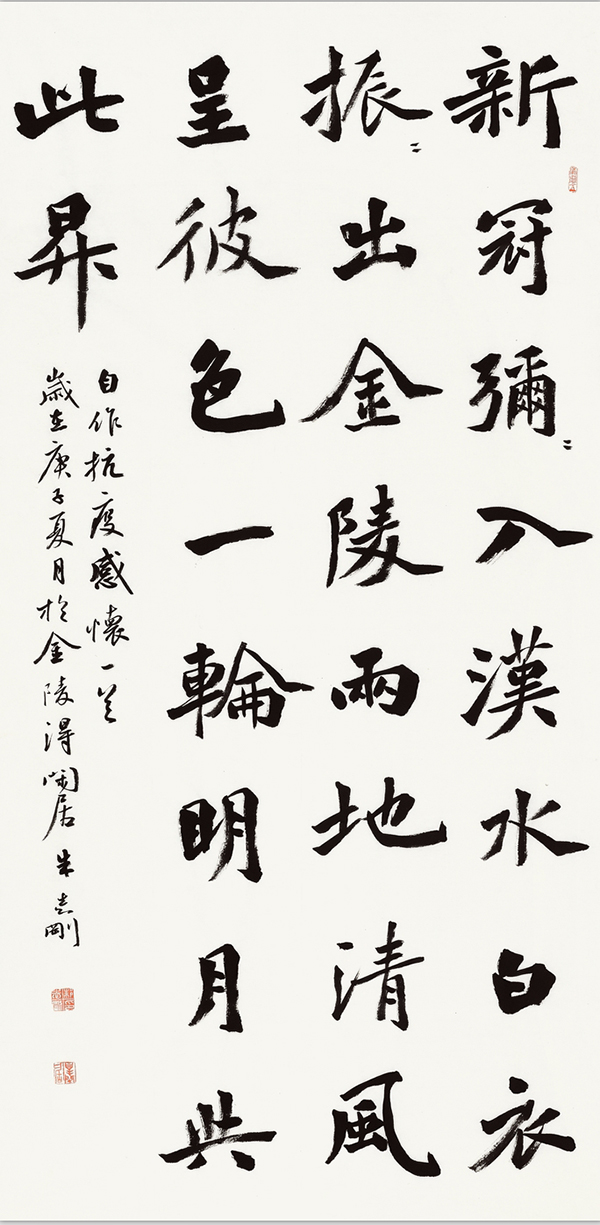 新冠彌〻入漢水白衣
振〻出金陵兩地清風
呈彼色一輪明月與
此昇
自作抗疫感懷一首
歲在庚子夏月於金陵得閒居朱志剛